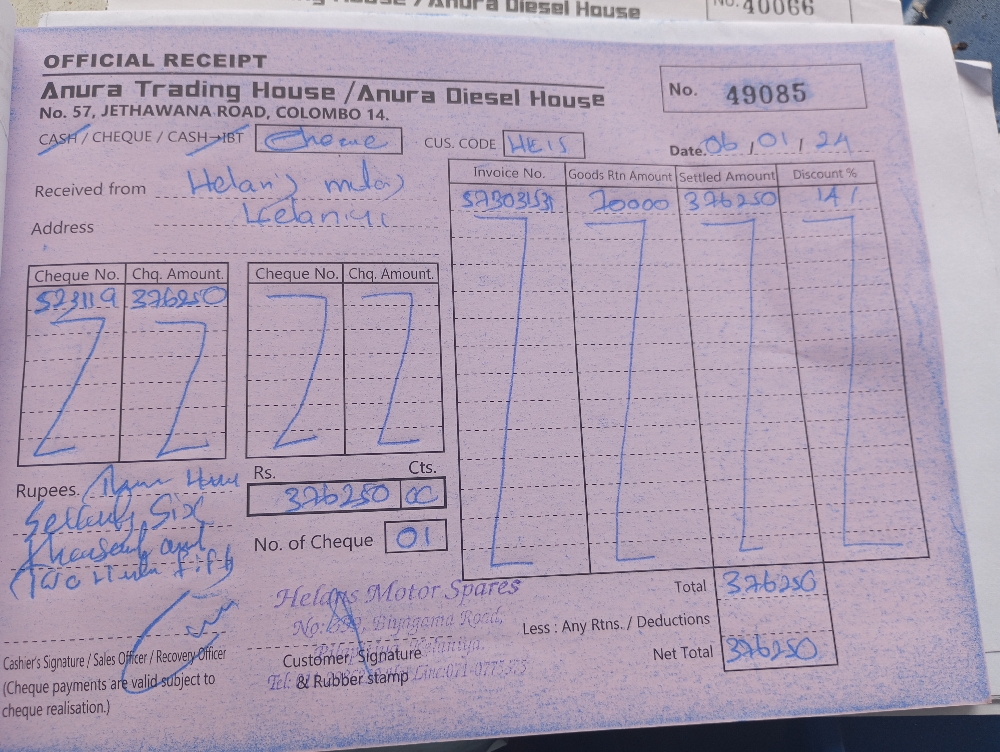 Anura Diesel House
No. 40066
OFFICIAL RECEIPT
Anura Trading House / Anura Diesel House
No. 57, JETHAWANA ROAD, COLOMBO 14.
No. 49085
CASH / CHEQUE / CASH-IBT Cheque
CUS. CODE HE15
Date. 06 / 01 / 24
Received from Helans
Address Kelaniya
Invoice No. Goods Rtn Amount Settled Amount Discount %
70000 376250 14%
Cheque No. Chq. Amount. Cheque No. Chq. Amount.
523119 376250
Rs. Cts.
376250 00
Rupees.
Six
and
No. of Cheque 01
Total 376250
Less : Any Rtns. / Deductions
Net Total 376250
Helans Motor Spares
Biyagama Road,
Kelaniya.
Cashier's Signature / Sales Officer / Recovery Officer
(Cheque payments are valid subject to
cheque realisation.)
Customer Signature
& Rubber stamp
Tel: